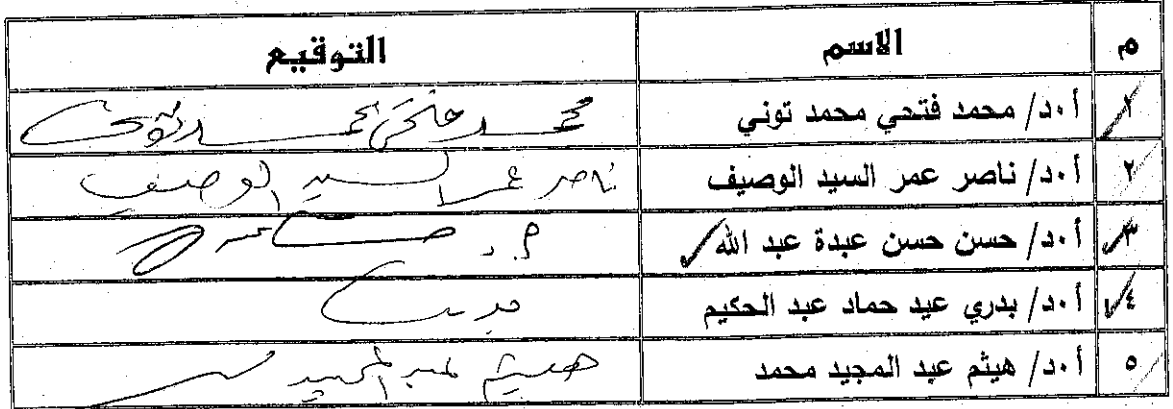 م الاسم التوقيع
١ أ.د/ محمد فتحي محمد توني محمد فتحي محمد توني
٢ أ.د/ ناصر عمر السيد الوصيف ناصر عمر السيد الوصيف
٣ أ.د/ حسن حسن عبدة عبد الله
٤ أ.د/ بدري عيد حماد عبد الحكيم
٥ أ.د/ هيثم عبد المجيد محمد هيثم عبد المجيد